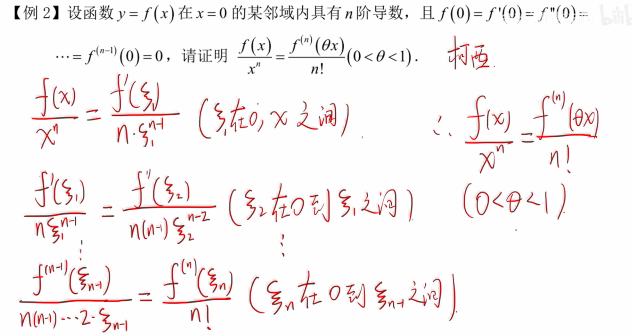 【例 2】设函数 y = f(x) 在 x = 0 的某邻域内具有 n 阶导数，且 f(0) = f'(0) = f''(0) =
⋯ = f^{(n-1)}(0) = 0，请证明 \frac{f(x)}{x^n} = \frac{f^{(n)}(θx)}{n!} (0 < θ < 1)． 柯西
\frac{f(x)}{x^n} = \frac{f'(ξ_1)}{n·ξ_1^{n-1}} (ξ_1在0, x 之间) ∴ \frac{f(x)}{x^n} = \frac{f^{(n)}(θx)}{n!}
\frac{f'(ξ_1)}{nξ_1^{n-1}} = \frac{f''(ξ_2)}{n(n-1)ξ_2^{n-2}} (ξ_2在0到ξ_1之间) (0<θ<1).
⋮ ⋮
\frac{f^{(n-1)}(ξ_{n-1})}{n(n-1)⋯2·ξ_{n-1}} = \frac{f^{(n)}(ξ_n)}{n!} (ξ_n在0到ξ_{n-1}之间).